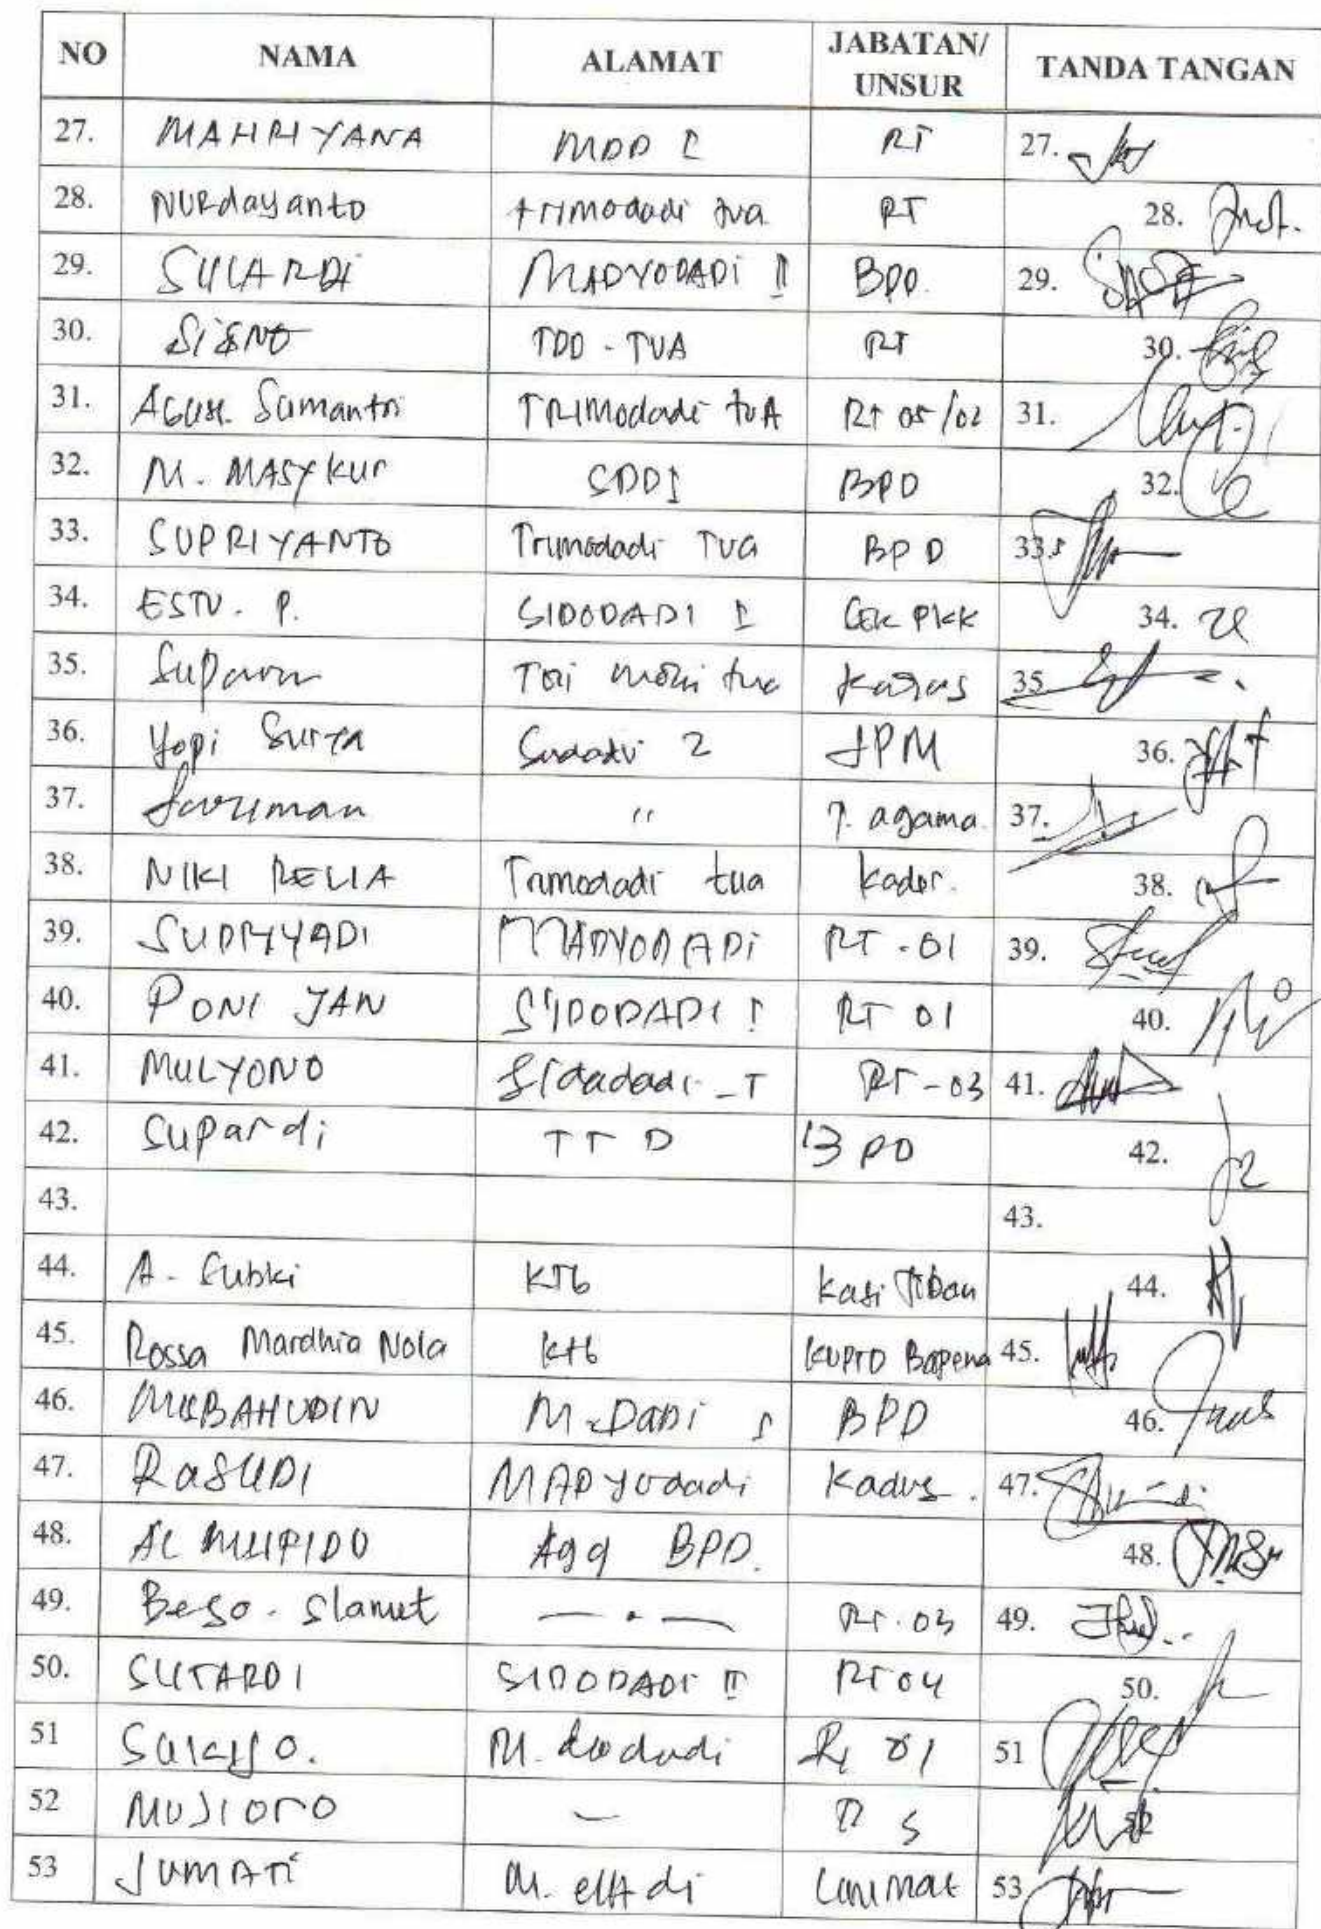 NO NAMA ALAMAT JABATAN/ UNSUR TANDA TANGAN
27. MAHRIYANA MDD I RT 27.
28. NURdayanto trimodadi tua RT 28.
29. SULARDI MADYODADI II BPD. 29.
30. SISNO TDD - TUA RT 30.
31. Agus. Sumantri TRIModadi tuA RT 05/02 31.
32. M. MASYkur SDD I BPD 32.
33. SUPRIYANTO Trimodadi Tua BPD 33
34. ESTU. P. SIDODADI I PKK 34.
35. Suparn tua 35
36. Yopi Surya 2 JPM 36.
37. " T. agama. 37.
38. NIKI RELIA Trimodadi tua kader. 38.
39. SUPRIYADI MADYODADI RT - 01 39.
40. PONI JAN SIDODADI I RT 01 40.
41. MULYONO Sidadadi - I RT - 03 41.
42. Supardi TTD BPD 42.
43. 43.
44. A. Subki KTb Kasi 44.
45. Rossa Mardhia Nola ktb KUPTD Bapena 45.
46. MUBAHUDIN M.DADI I BPD 46.
47. RASUDI MADyodadi Kadus. 47.
48. AL MUFIDO Agg BPD. 48.
49. Beso. Slamet — . — RT. 03 49.
50. SUTARDI SIDODADI II RT 04 50.
51 M. dadi 01 51
52 — 52
53 JUMATI M. 53